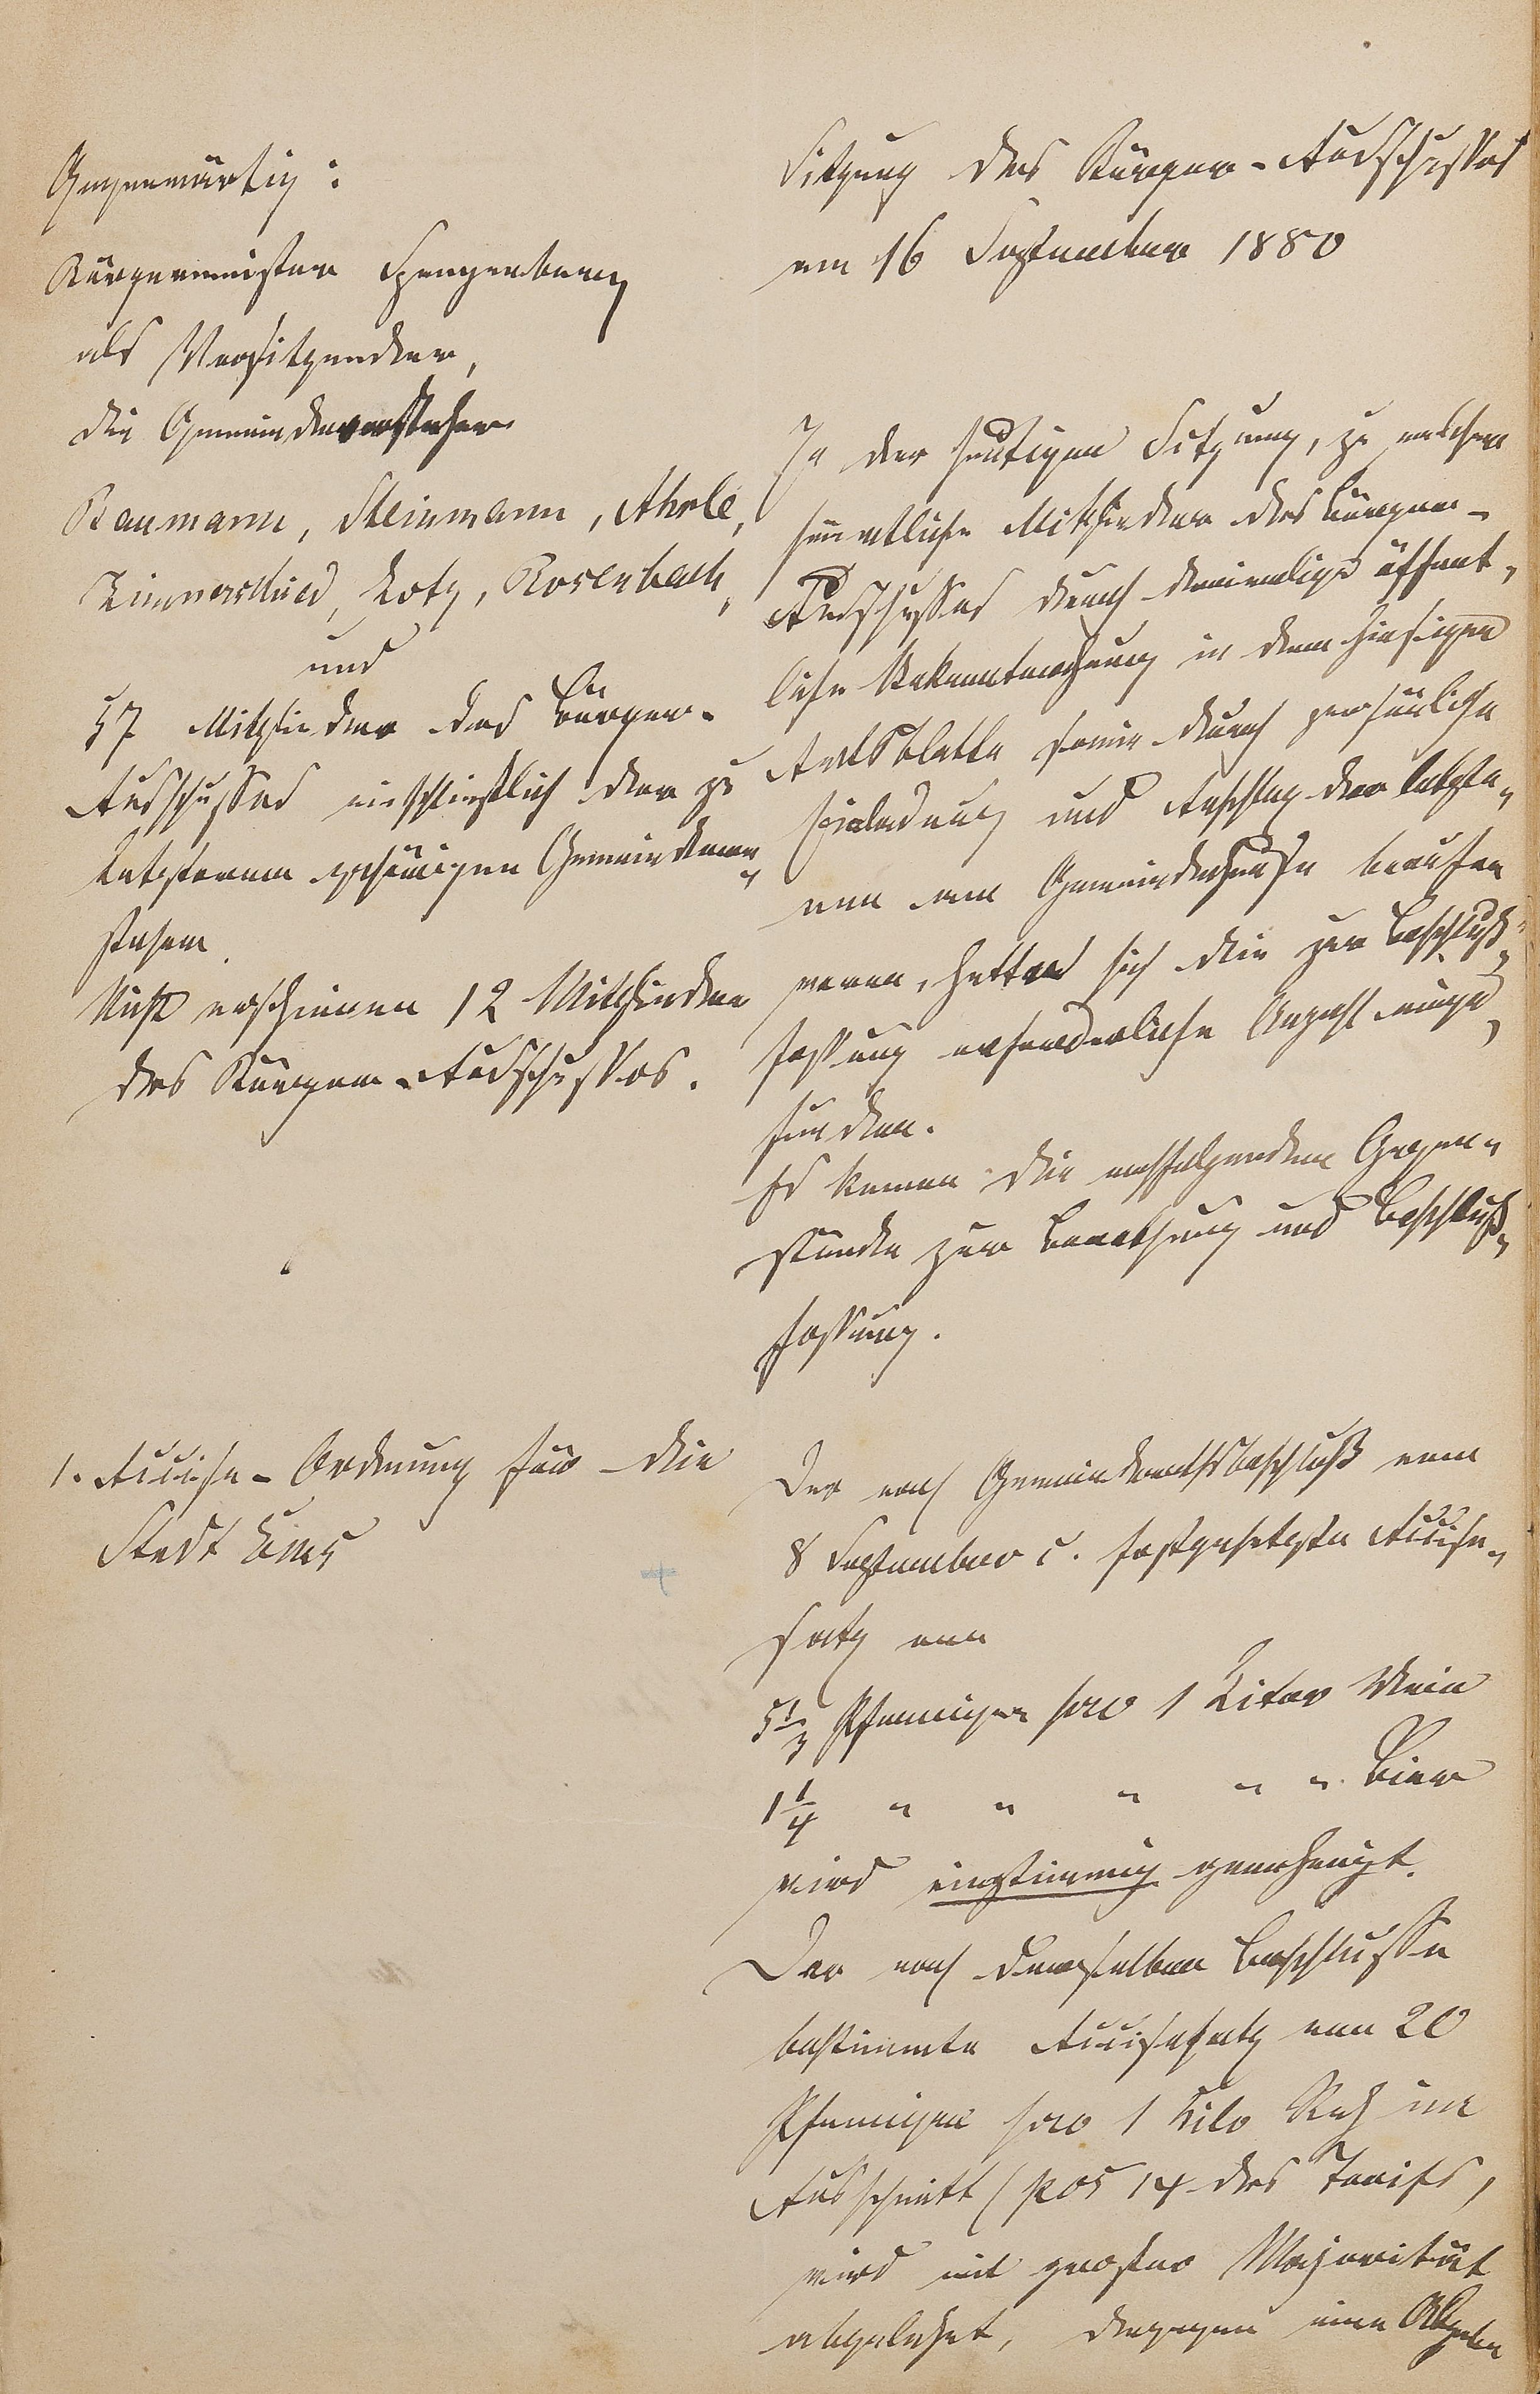 Gegenwärtig:
Bürgermeister Spangenberg
als Vorsitzender,
die Gemeindevorsteher
Baumann, Steinmann, Ahole,
Zimmerschied, Lotz, Rosenbach,
und
57 Mitglieder des Bürger-
Ausschusses einschließlich der zu
Letzterem gehörigen Gemeindevor-
steher.
Nicht erschienen 12 Mitglieder
des Bürger-Ausschusses.
1. Accise-Ordnung für die
Stadt Ems
Sitzung des Bürger-Ausschusses
am 16 September 1880
In der heutigen Sitzung, zu welcher
sämmtliche Mitglieder des Bürger-
Ausschusses durch dreimalige öffent-
liche Bekanntmachung in dem hiesigen
Amtsblatte sowie durch persönliche
Einladung und Anschlag der letzte-
ren am Gemeindehause berufen
waren, hatten sich die zur Beschluß-
fassung erforderliche Anzahl einge-
funden.
Es kamen die nachfolgenden Gegen-
stände zur Berathung und Beschluß-
fassung.
Der nach Gemeinderathsbeschluß vom
8 September c. festgesetzte Accise-
satz von
5 1/3 Pfennigen pro 1 Liter Wein
1 1/4 " " " " " Bier
wird einstimmig genehmigt.
Der nach demselben Beschlusse
bestimmte Accisesatz von 20
Pfennigen pro 1 Kilo Reh im
Ausschnitt (pos 14 des Tarifs,
wird mit großer Majorität
abgelehnt, dagegen eine Abgabe